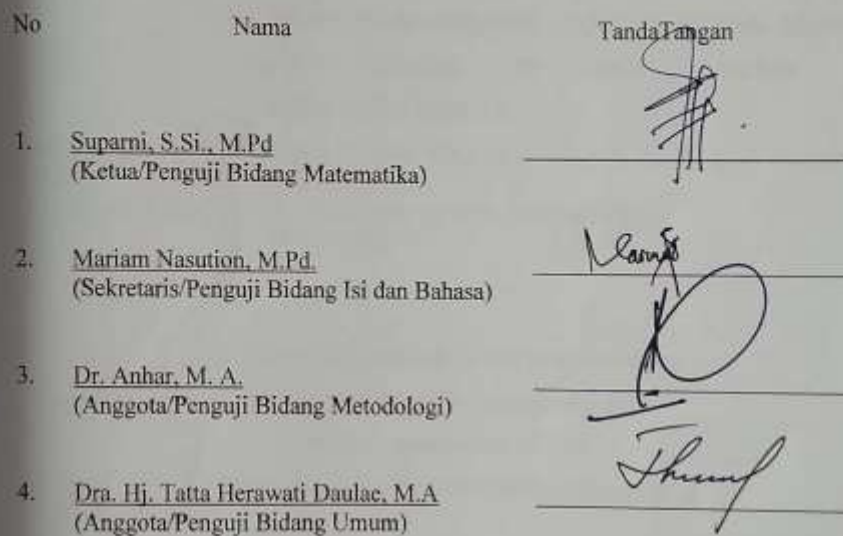 No Nama TandaTangan
1. Suparni, S.Si., M.Pd
(Ketua/Penguji Bidang Matematika)
2. Mariam Nasution, M.Pd.
(Sekretaris/Penguji Bidang Isi dan Bahasa)
3. Dr. Anhar, M. A.
(Anggota/Penguji Bidang Metodologi)
4. Dra. Hj. Tatta Herawati Daulae, M.A
(Anggota/Penguji Bidang Umum)